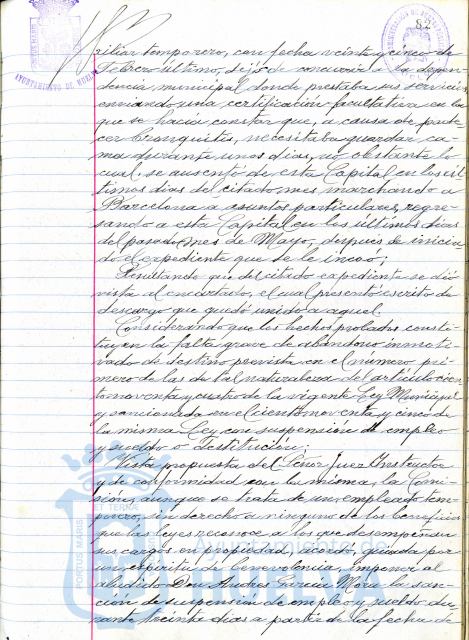 82
AYUNTAMIENTO DE HUELVA
xiliar temporero, con fecha veinte y cinco de
Febrero último, dejó de concurrir a la depen-
dencia municipal donde prestaba sus servicios,
enviando una certificación facultativa en la
que se hacía constar que, a causa de pade-
cer bronquitis, necesitaba guardar ca-
ma durante unos dias, no obstante lo
cual se ausentó de esta Capital en los úl-
timos dias del citado mes marchando a
Barcelona a asuntos particulares, regre-
sando a esta Capital en los últimos dias
del pasado mes de Mayo, después de inicia-
do el expediente que se le incoó;
Resultando que del citado expediente se dió
vista al encartado, el cual presentó escrito de
descargo que quedó unido a aquel.
Considerando que los hechos probados consti-
tuyen la falta grave de abandono inmoti-
vado de destino prevista en el número pri-
mero de las de tal naturaleza del artículo cien-
to noventa y cuatro de la vigente Ley Municipal
y sancionada en el ciento noventa y cinco de
la misma Ley con suspensión de empleo
y sueldo o destitución;
Vista propuesta del Señor Juez Instructor
y de conformidad con la misma, la Comi-
sión, aunque se trata de un empleado tem-
porero, sin derecho a ninguno de los beneficios
que las leyes reconoce a los que desempeñan
sus cargos en propiedad, acordó, guiada por
un espíritu de benevolencia, imponer al
aludido Don Andres Garcia Mora la san-
ción de suspensión de empleo y sueldo du-
rante treinta dias a partir de la fecha de
PORTUS MARIS
ET TERRÆ
Ayuntamiento de
HUELVA